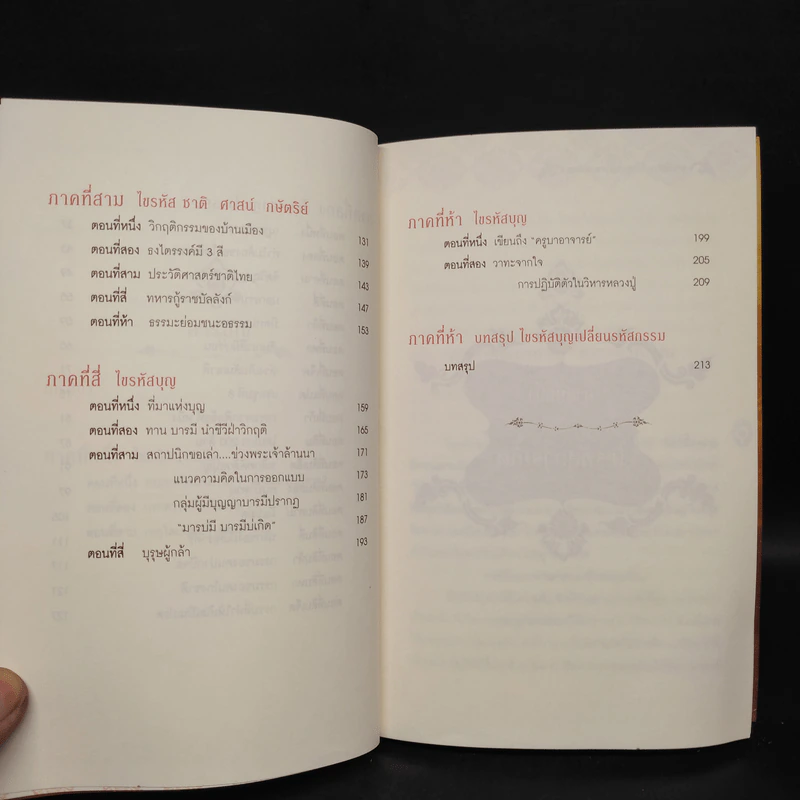 ภาคที่สาม ไขรหัส ชาติ ศาสน์ กษัตริย์
ตอนที่หนึ่ง วิกฤติกรรมของบ้านเมือง 131
ตอนที่สอง ธงไตรรงค์มี 3 สี 139
ตอนที่สาม ประวัติศาสตร์ชาติไทย 143
ตอนที่สี่ ทหารกู้ราชบัลลังก์ 147
ตอนที่ห้า ธรรมะย่อมชนะอธรรม 153
ภาคที่สี่ ไขรหัสบุญ
ตอนที่หนึ่ง ที่มาแห่งบุญ 159
ตอนที่สอง ทาน บารมี นำชีวีฝ่าวิกฤติ 165
ตอนที่สาม สถาปนิกขอเล่า....ข่วงพระเจ้าล้านนา 171
แนวความคิดในการออกแบบ 173
กลุ่มผู้มีบุญญาบารมีปรากฏ 181
"มารบ่มี บารมีบ่เกิด" 187
ตอนที่สี่ บุรุษผู้กล้า 193
ภาคที่ห้า ไขรหัสบุญ
ตอนที่หนึ่ง เขียนถึง "ครูบาอาจารย์" 199
ตอนที่สอง วาทะจากใจ 205
การปฏิบัติตัวในวิหารหลวงปู่ 209
ภาคที่ห้า บทสรุป ไขรหัสบุญเปลี่ยนรหัสกรรม
บทสรุป 213